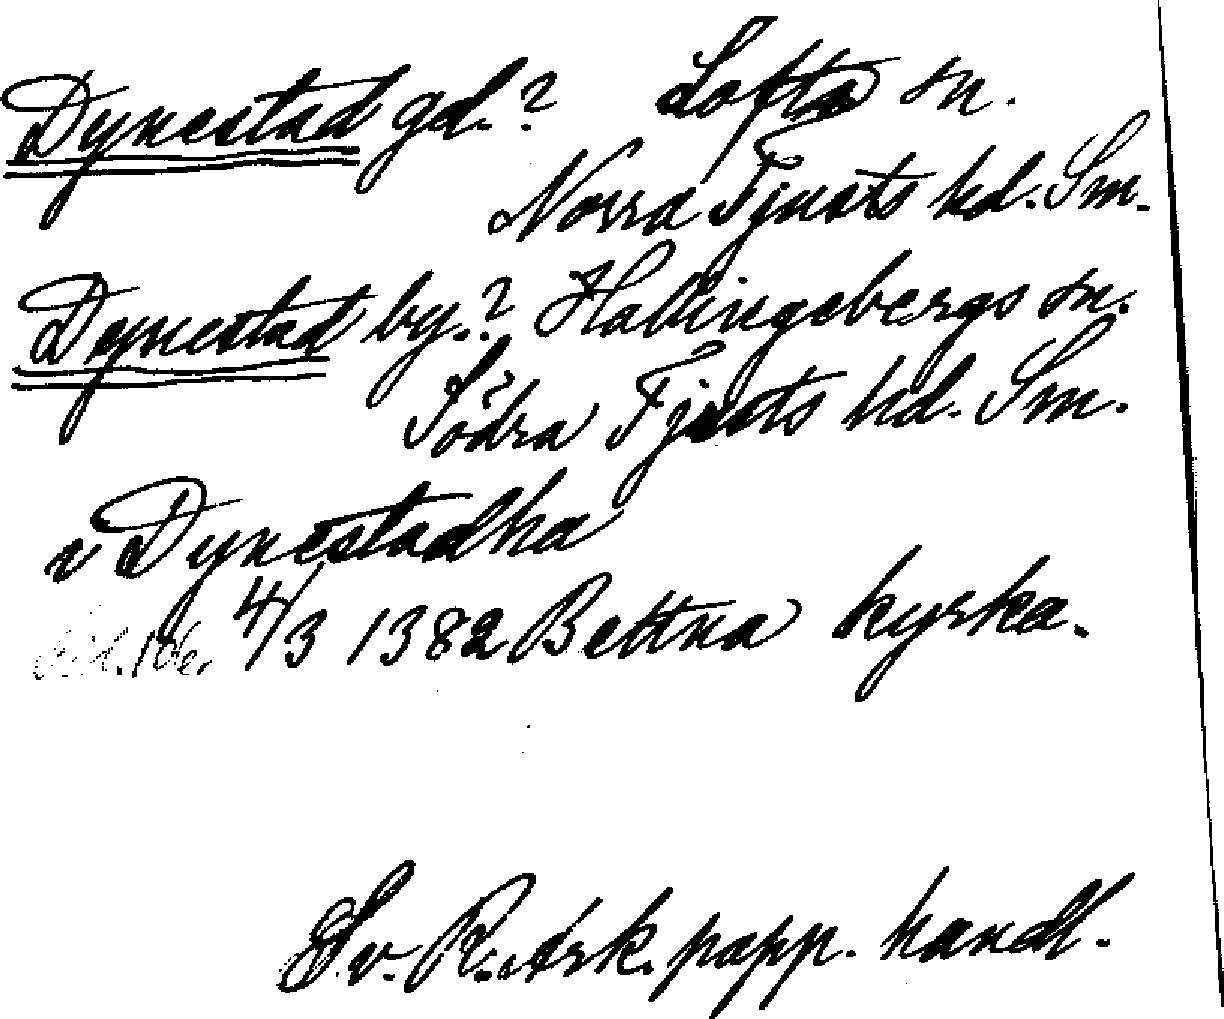 Dynestad gd.? Lofta sn.
Norra Tjusts hd. Sm.
Dynestad by.? Hallingebergs sn.
Södra Tjusts hd. Sm.
v Dynestadha
4/3 1382 Bettna kyrka.
Sv. R. ark. papp. handl.